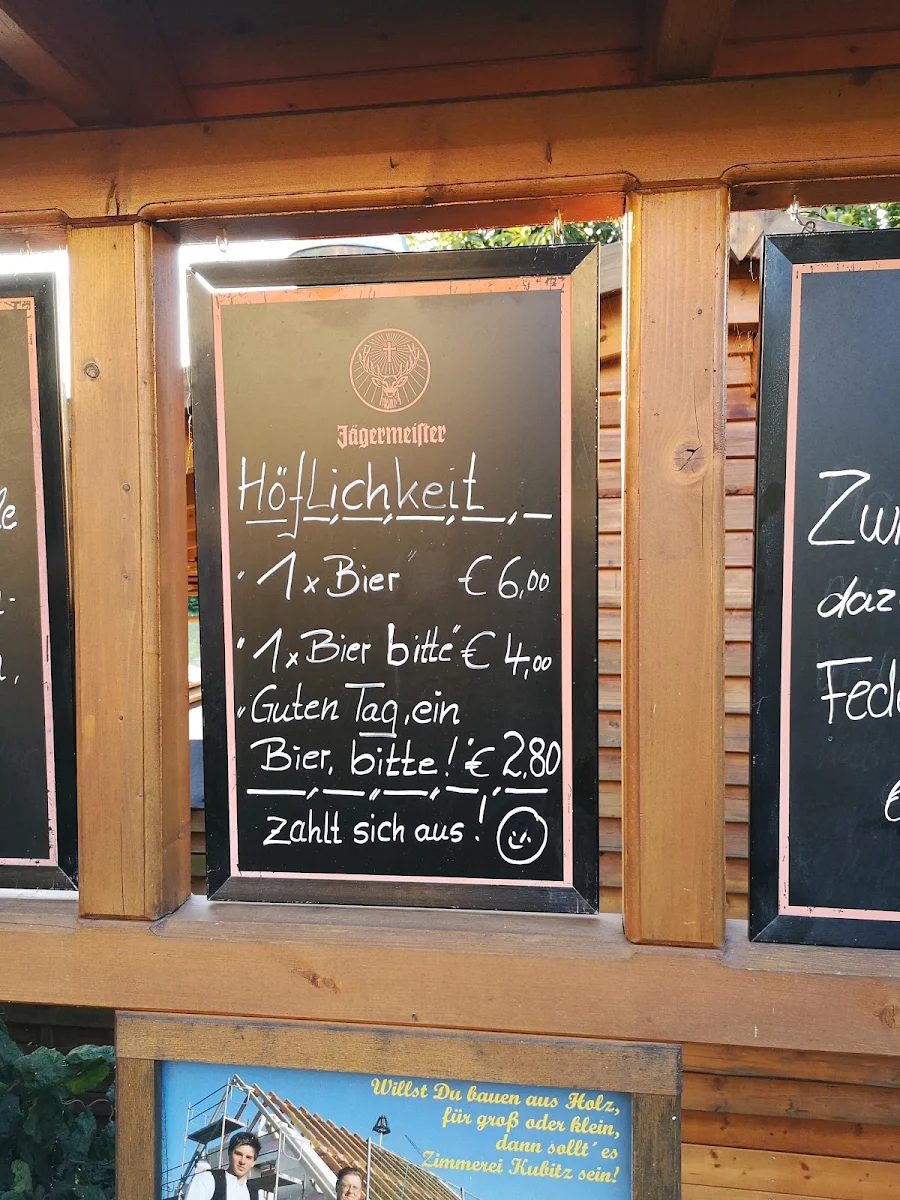 Jägermeister
Höflichkeit
"1 x Bier" € 6,00
"1 x Bier bitte" € 4,00
"Guten Tag, ein
Bier, bitte!" € 2,80
zahlt sich aus!
daz
Willst Du bauen aus Holz,
für groß oder klein,
dann sollt´ es
Zimmerei Kubitz sein!